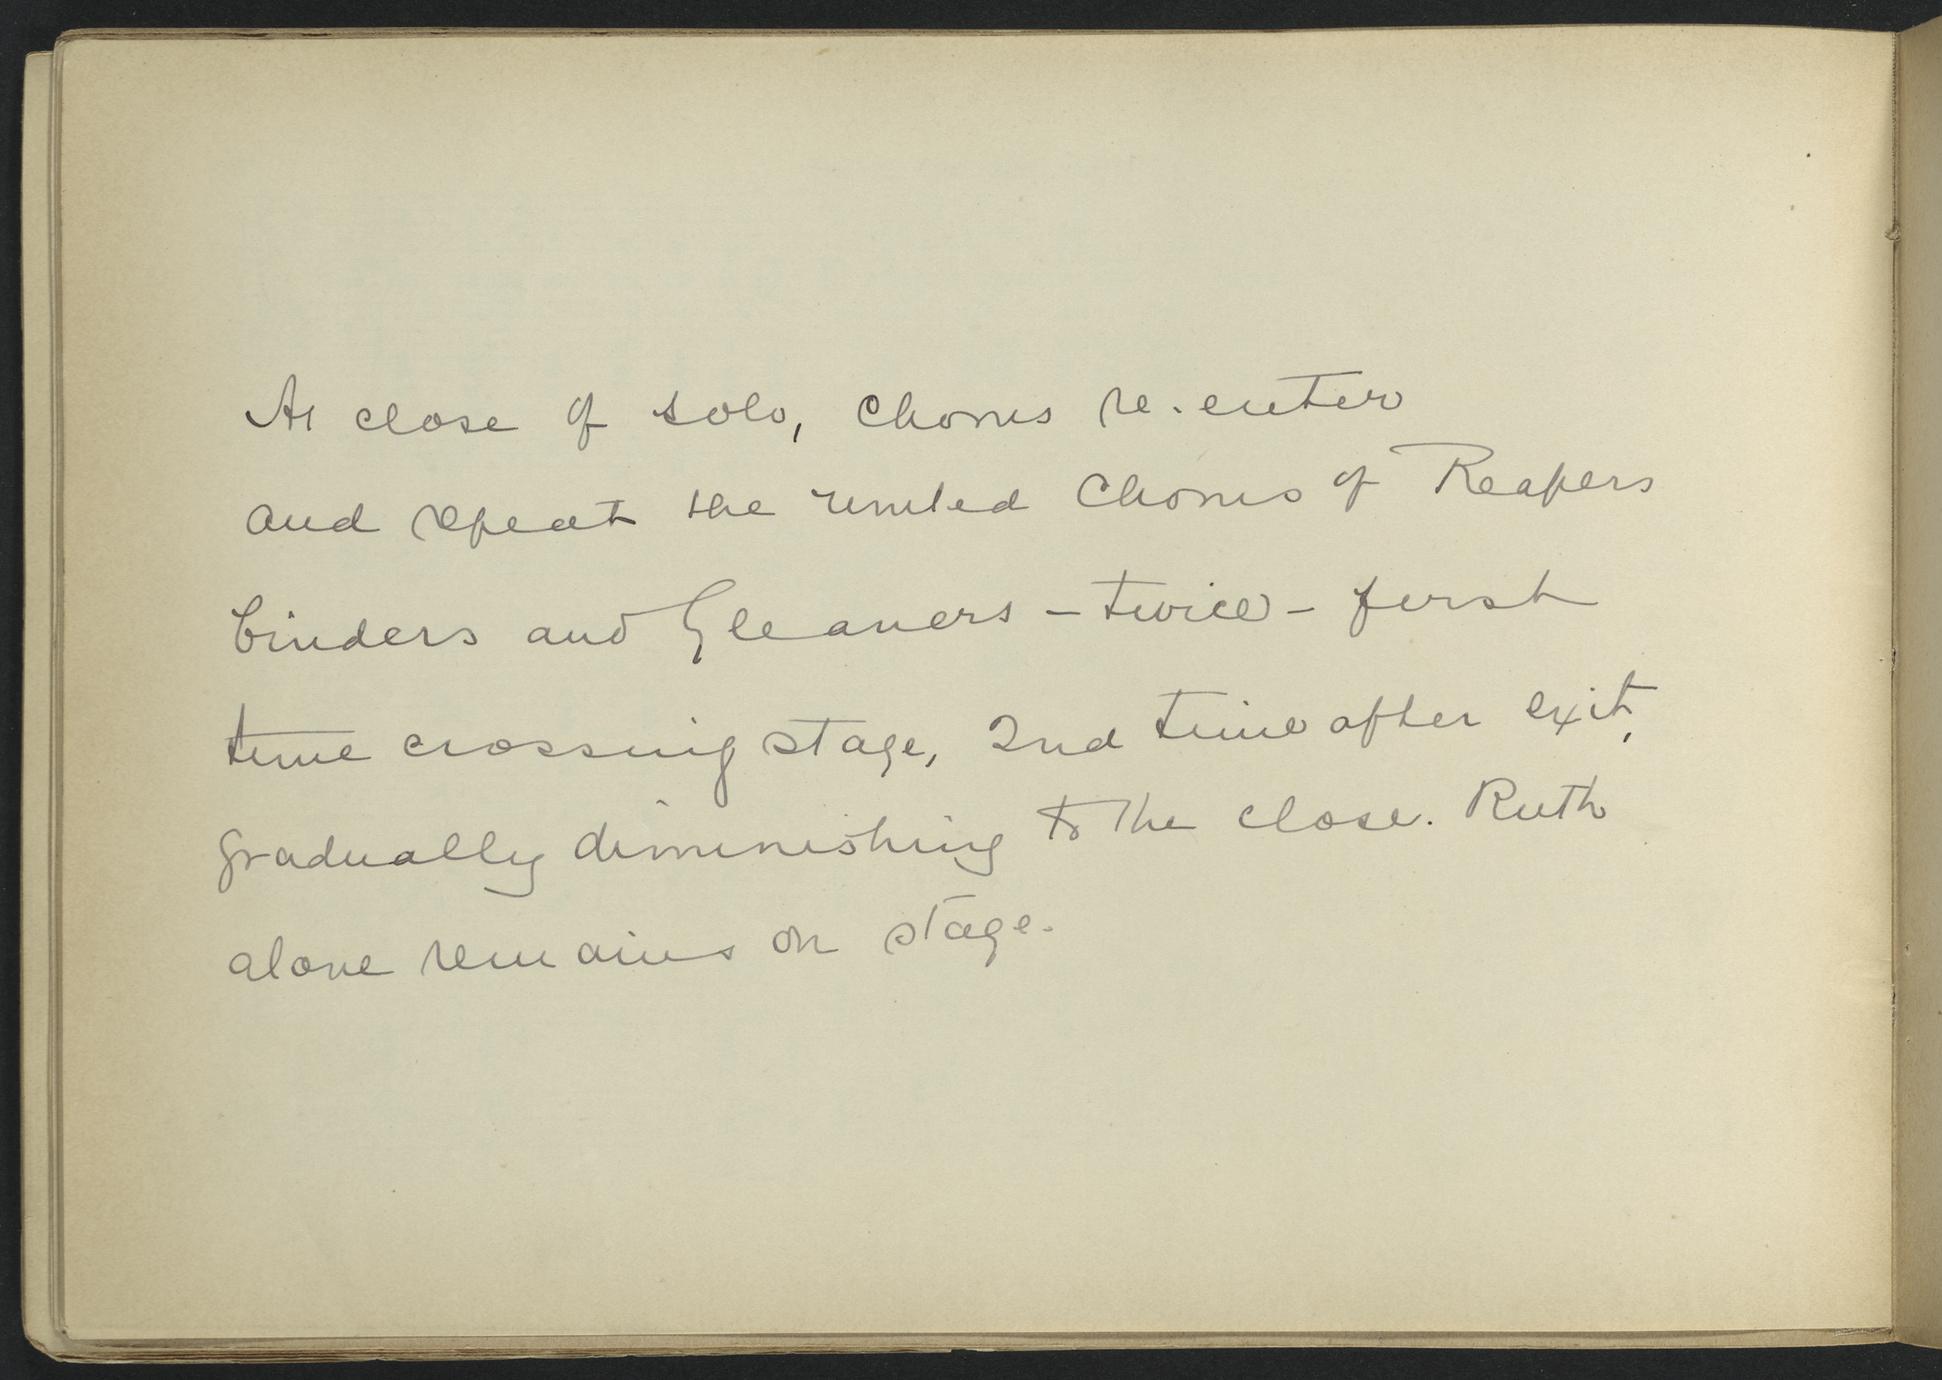 At close of solo, Chorus re-enter
and repeat the united Chorus of Reapers
binders and Gleaners - twice - first
time crossing stage, 2nd time after exit,
gradually diminishing to the close. Ruth
alone remains on stage.